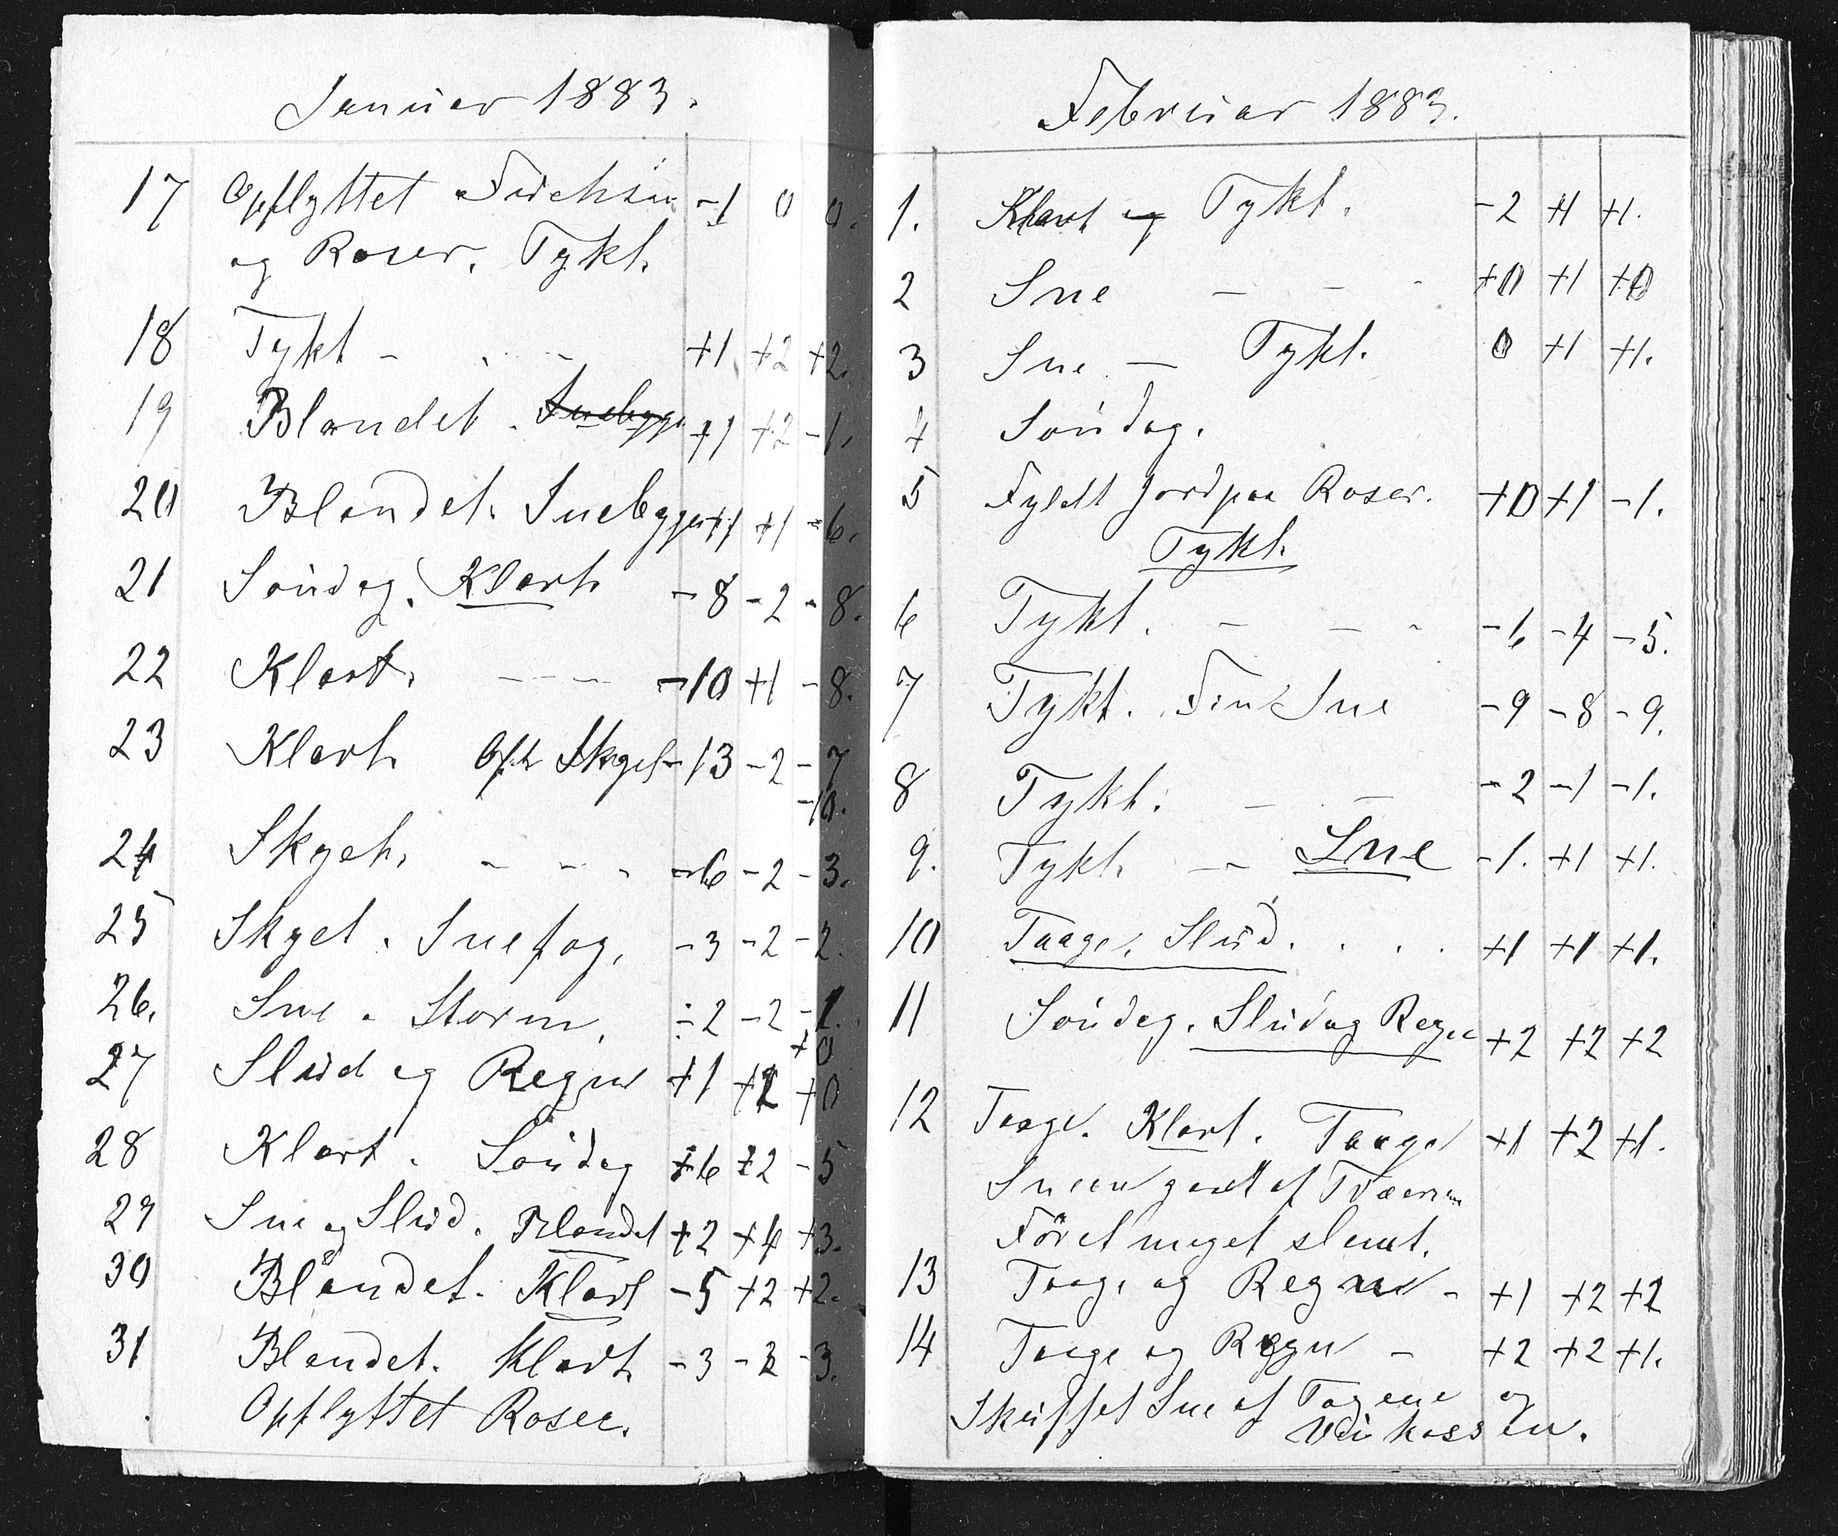 Januar 1883.
17 Opflyttet Fuchsier -1 0 0.
og Roser. Tykt.
18 Tykt - - - +1 +2 +2.
19 Blandet. Snebyge +1 +2 -1.
20 Blandet. Snebyger +1 +1 -6.
21 Söndag. Klart -8 -2 -8.
22 Klart. - - - -10 +1 -8.
23 Klart Oft Skyet -13 -2 -7
-10.
24 Skyet. - - - -6 -2 -3.
25 Skyet. Snefog. -3 -2 -2.
26. Sne. Storm. ÷2 -2 -1.
+0
27 Slud og Regn +1 +2 +0
28 Klart. Söndag +6 +2 -5
29 Sne og Slud. Blandet +2 +4 +3.
30 Blandet. Klart -5 +2 +2.
31 Blandet. Klart -3 -2 -3.
Opflyttet Roser.
Februar 1883.
1. Klart og Tykt. -2 +1 +1.
2 Sne - - - +0 +1 +0
3 Sne - Tykt. 0 +1 +1.
4 Söndag.
5 Fyldt Jord paa Roser. +0 +1 -1.
Tykt.
6 Tykt. - - - -6 -4 -5.
7 Tykt. Fin Sne -9 -8 -9.
8 Tykt. - - -2 -1 -1.
9. Tykt - Sne -1. +1 +1.
10 Taage. Slud. . . . +1 +1 +1.
11 Söndag. Slud og Regn +2 +2 +2
12 Taage. Klart. Taage +1 +2 +1.
Sneen gaet af Tværrum
Föret meget slemt.
13 Taage og Regn - +1 +2 +2
14 Taage og Regn - +2 +2 +1.
Skuffet Sne af Tagene og
Vinkassen.